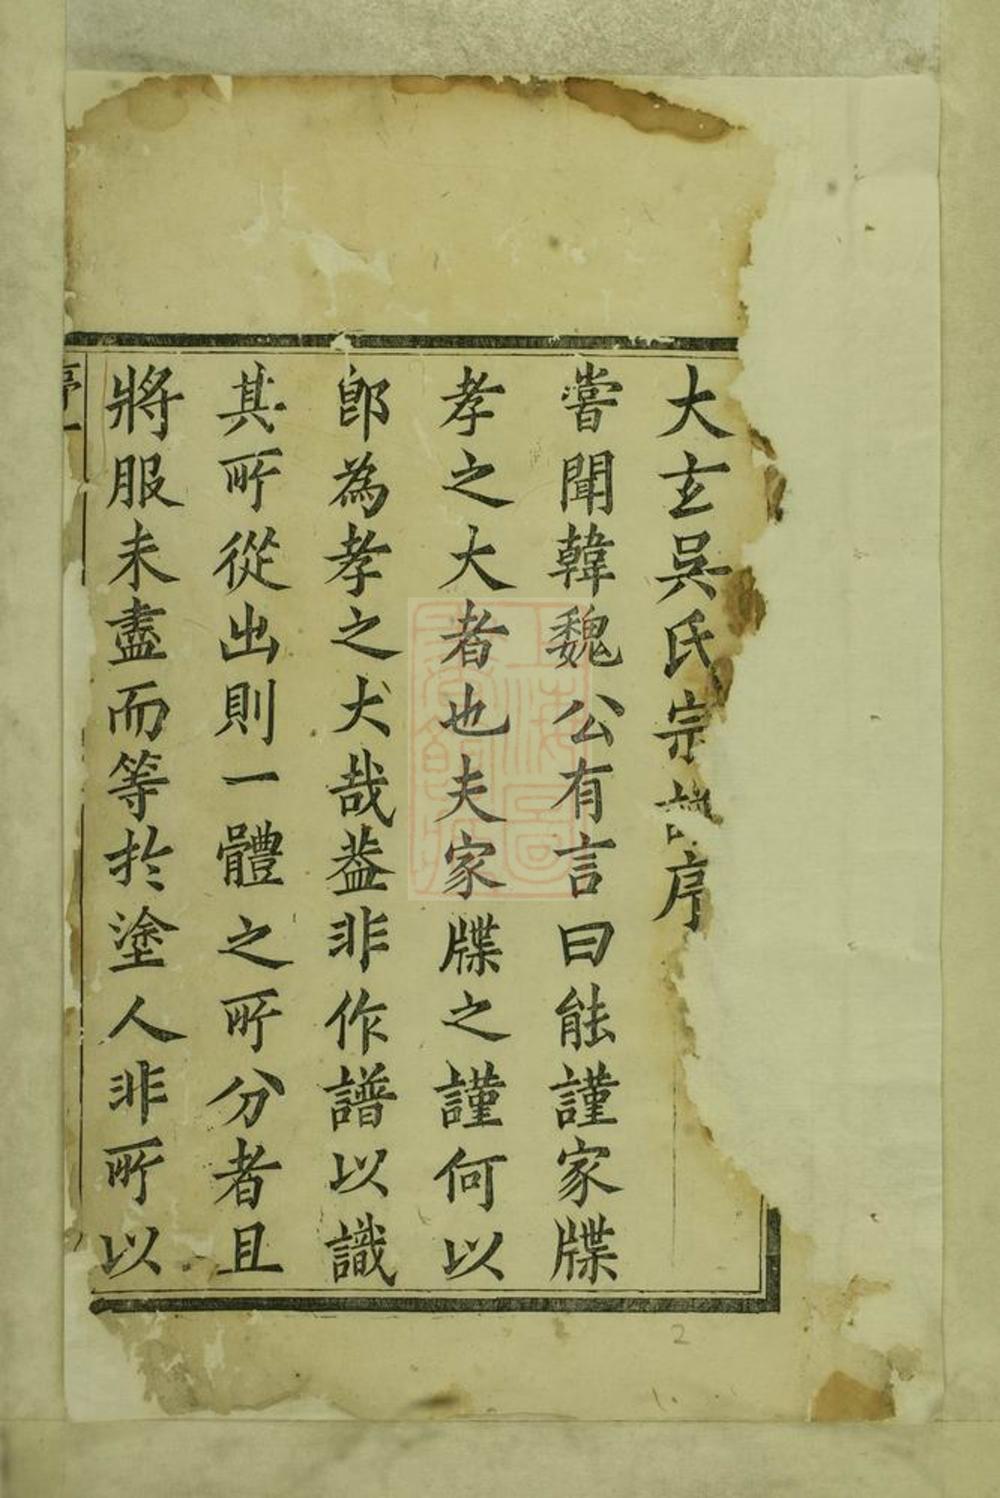 大玄吳氏宗譜序
嘗聞韓魏公有言曰能謹家牒
孝之大者也夫家牒之謹何以
郎為孝之大哉葢非作譜以識
其所從出則一體之所分者且
將服未盡而等於塗人非所以
序一
上海圖書館藏
2